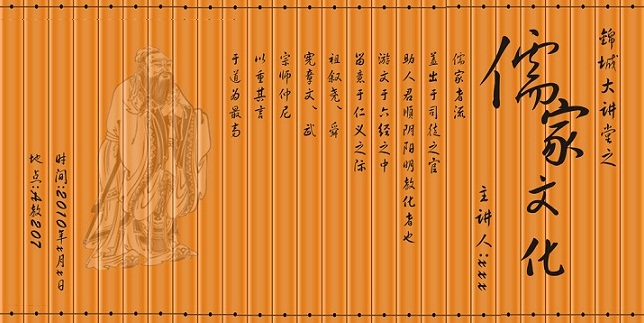 锦城大讲堂之
儒家文化
主讲人:xxx
儒家者流
盖出于司徒之官
助人君顺阴阳明教化者也
游文于六经之中
留意于仁义之际
祖叙尧、舜
宪章文、武
宗师仲尼
以重其言
于道为最高
时间:2010年x月x日
地点:A教207